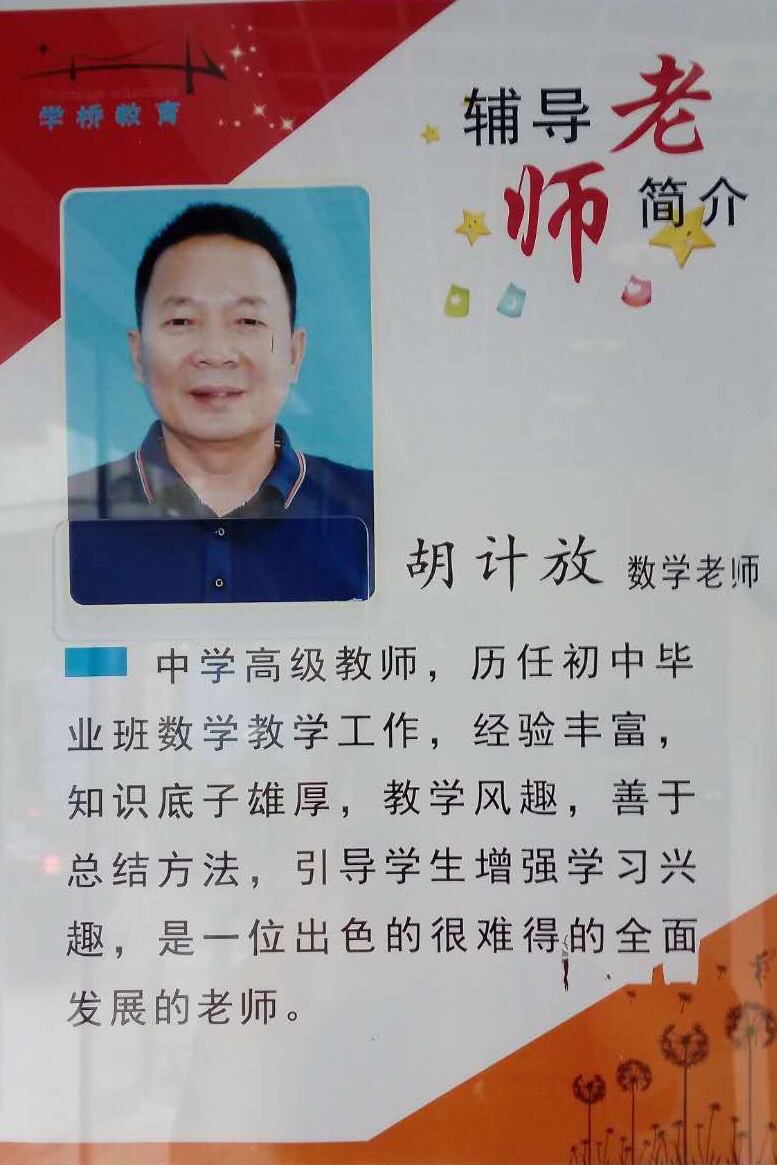 学桥教育
辅导老
师简介
胡计放 数学老师
中学高级教师，历任初中毕
业班数学教学工作，经验丰富，
知识底子雄厚，教学风趣，善于
总结方法，引导学生增强学习兴
趣，是一位出色的很难得的全面
发展的老师。